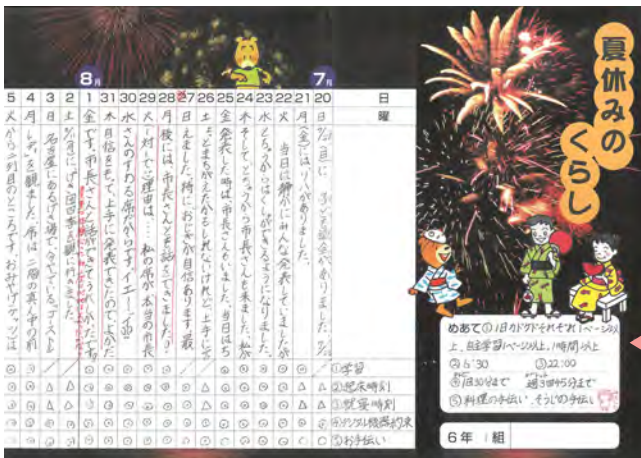 夏休みの
くらし
めあて①1日カドクドそれぞれ1ページ以
上、自主学習1ページ以上、1時間以上
②6:30 ③22:00
④1回30分まで 週3回45分まで
⑤料理の手伝い、そうじの手伝い
6年 1組
7月
8月
日 20 21 22 23 24 25 26 27 28 29 30 31 1 2 3 4 5
曜 日 月 火 水 木 金 土 日 月 火 水 木 金 土 日 月 火
子ども議会がありました。
(金)はリハがありました。
当日は静かにみんな発表していましたが
とちゅうからはくしゅができるようになりました。
そして、とちゅうから市長さんも来ました。私が
発表した時は、市長さんもいました。当日はち
ょっとまちがえたかもしれないけれど上手に言
えました。特におじぎが自信あります。最
後には、市長さんとも話ができました。1
対1で 理由は……私の席が本当の市長
さんのすわる席だからです。イエーイ
自信をもって、上手に発表できたのでよかった
です。市長さんと話ができてうれしかったです。
げき団四季を観に行きました。
名古屋にあるげき場で、今やっている「ゴースト&
レディ」を観ました。席は二階の真ん中の前
から二列目のところです。おみやげグッズは
①学習
②起床時刻
③就寝時刻
⑤お手伝い